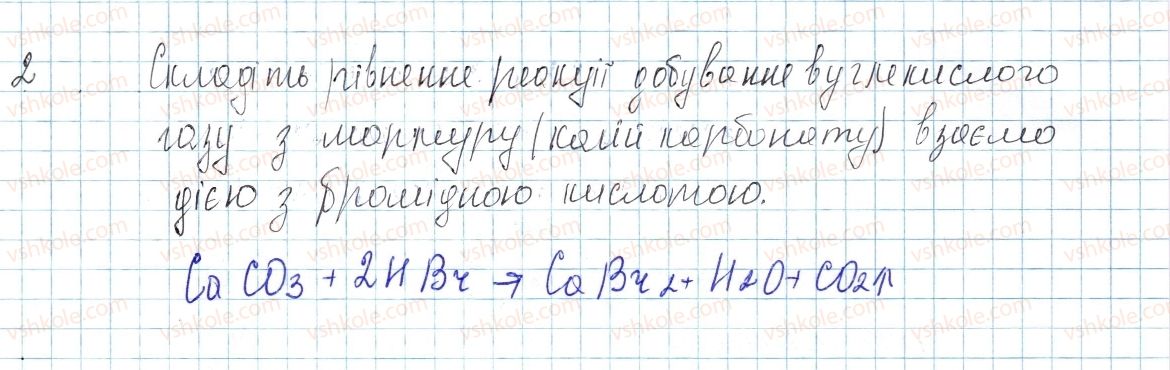 2 Складіть рівненне реакції добуванне вуглекислого
газу з мармуру (калій карбонату) взаємо
дією з бромідною кислотою.
CaCO3 + 2HBr → CaBr2 + H2O + CO2↑